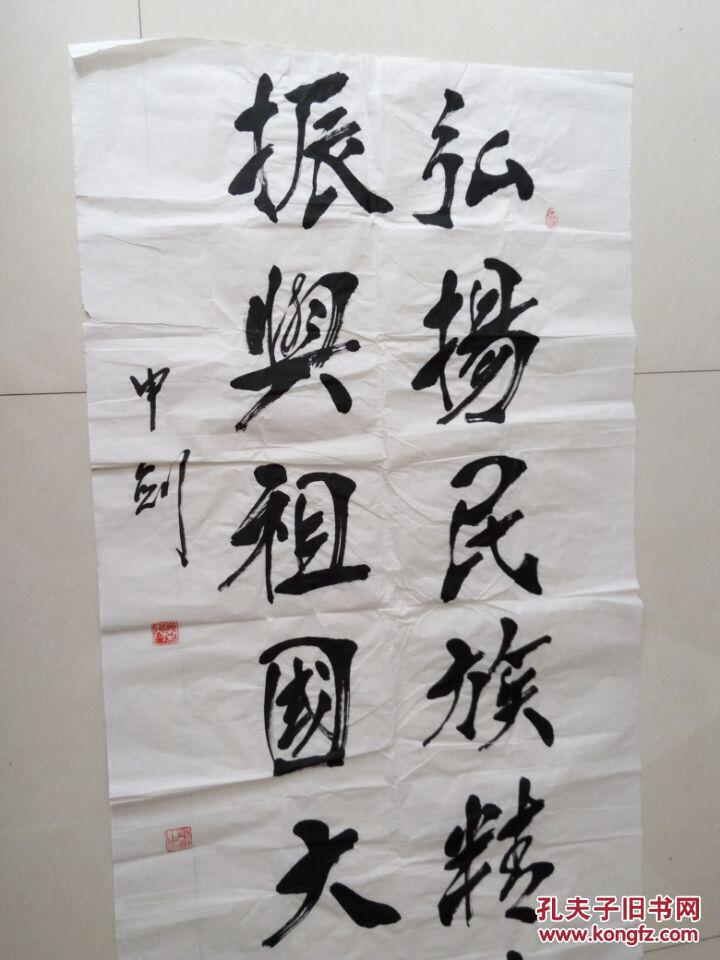 弘揚民族精
振興祖國大
申剑
孔夫子旧书网
www.kongfz.com